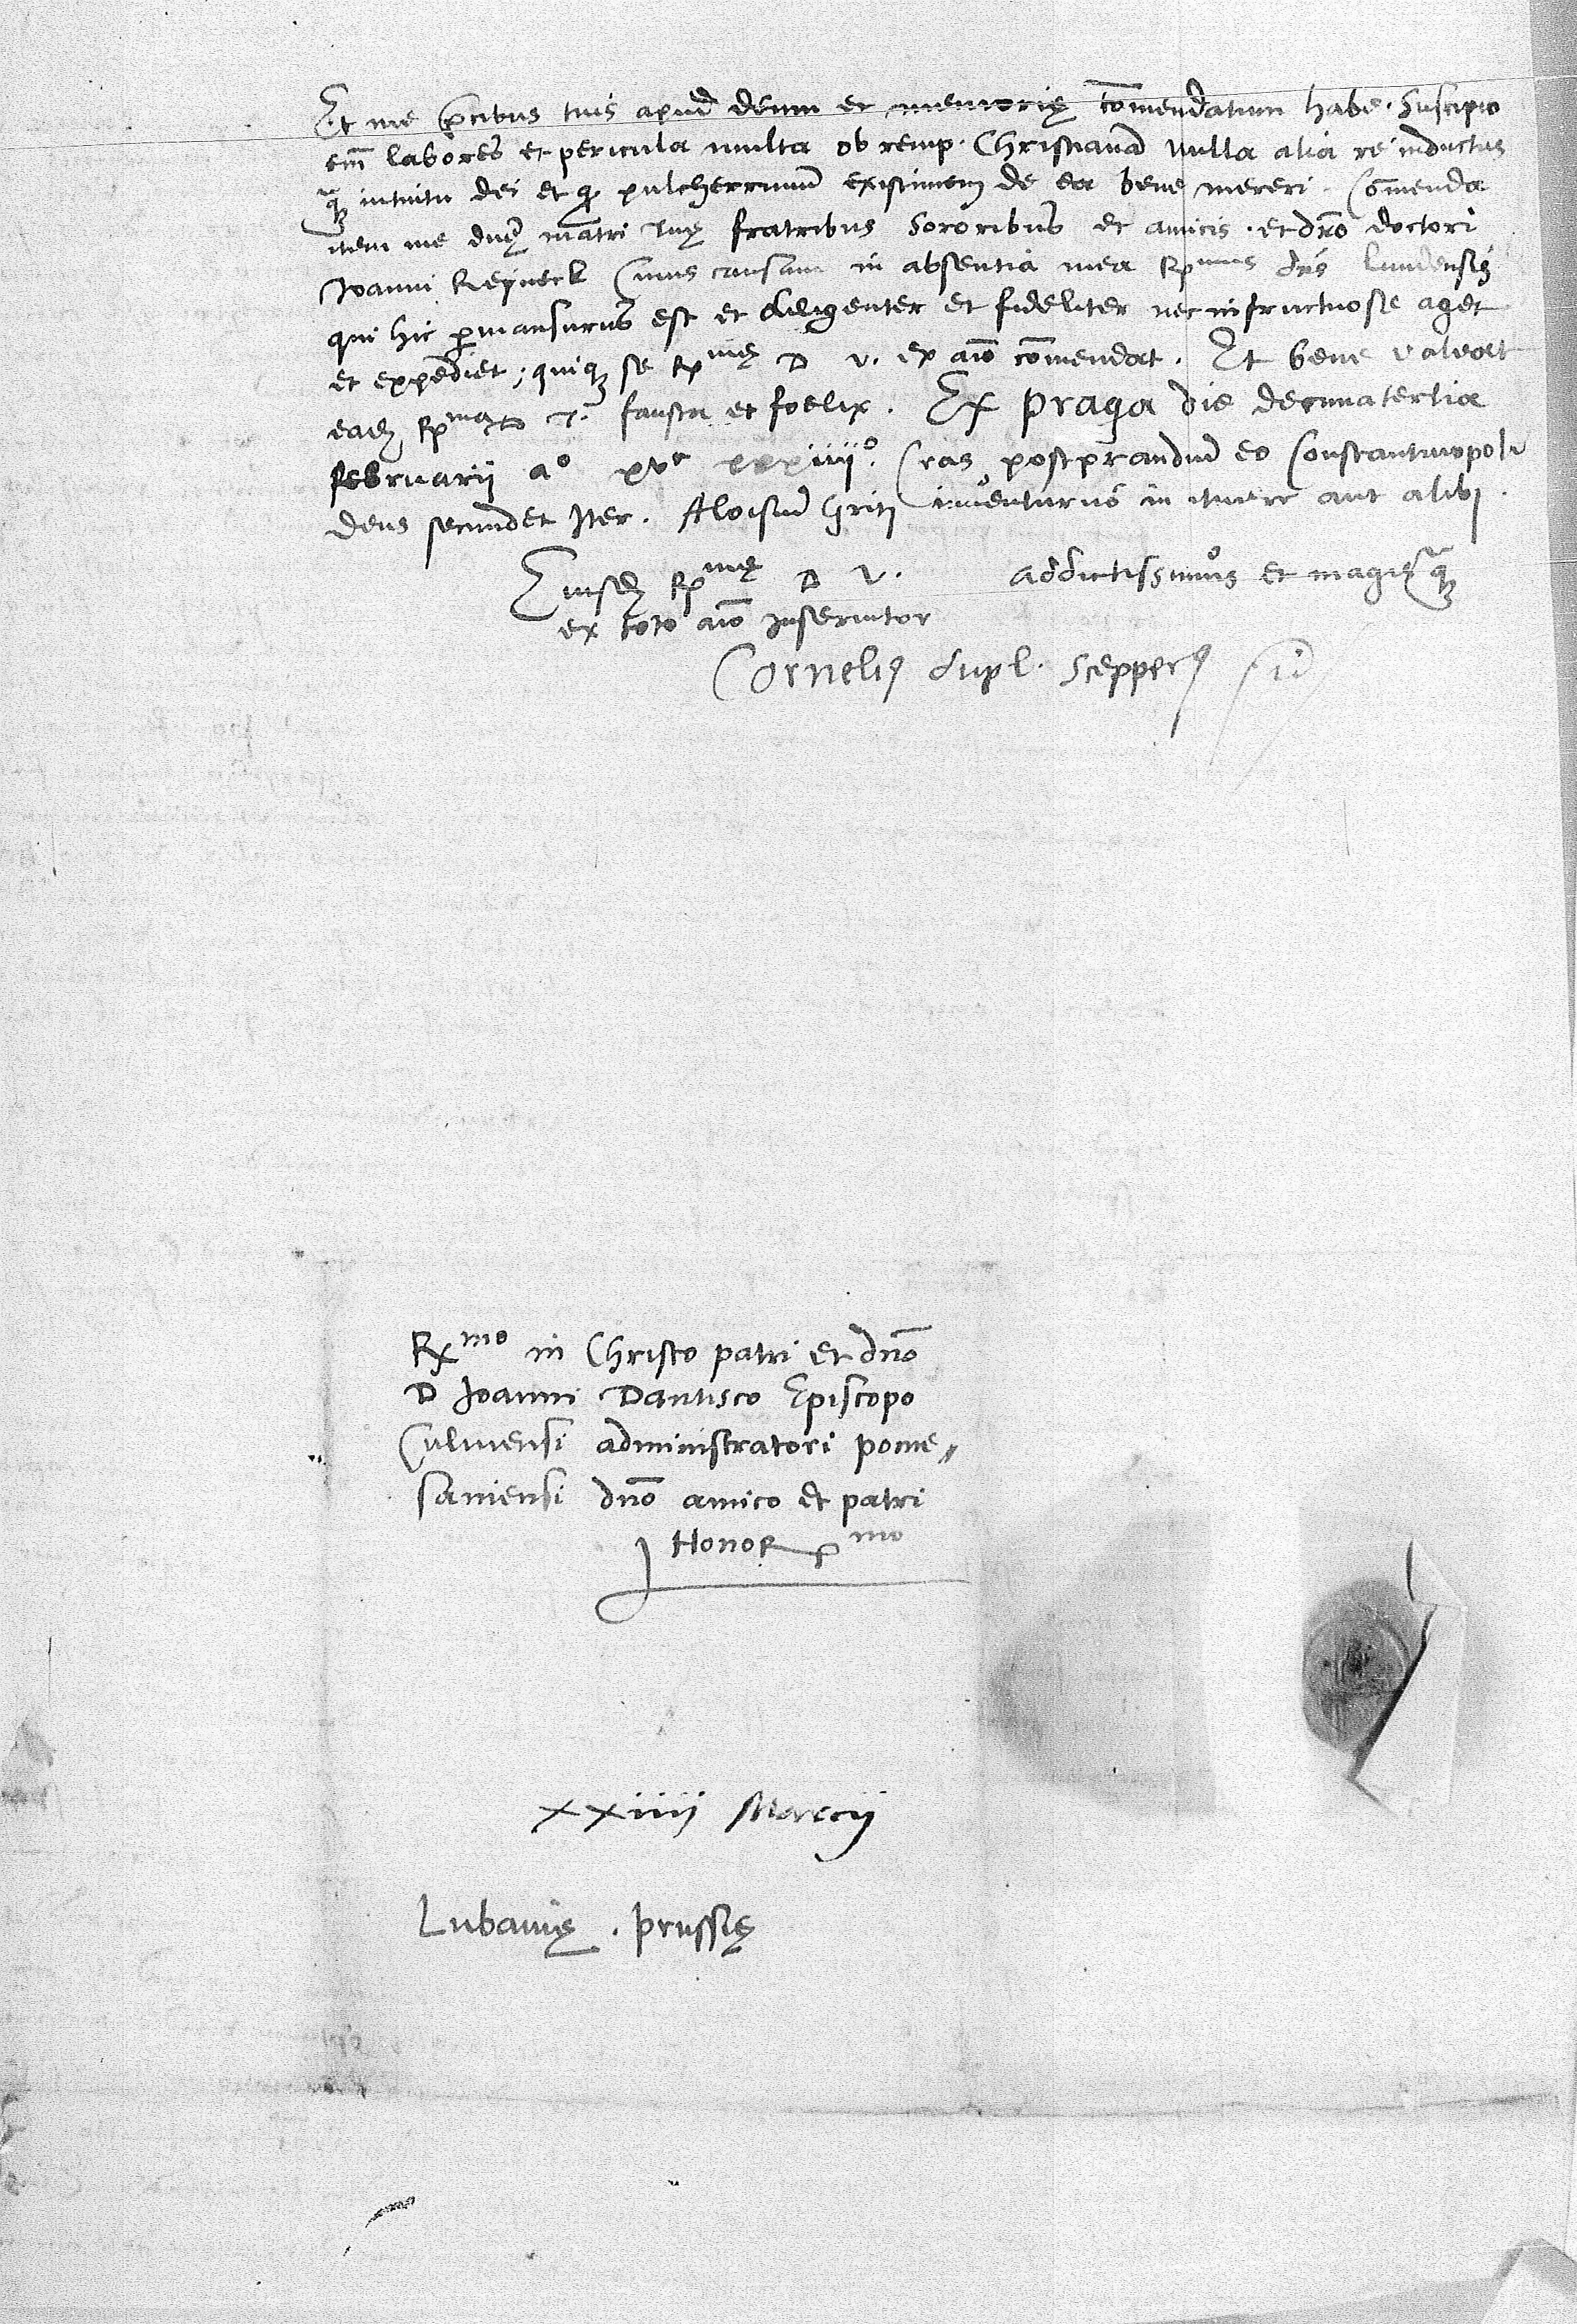 Et me p̄cibus tuis apud deum et memorię com̄endatum habe. Suscipio
em̄ labores et pericula multa ob remp. Christianā nulla alia re inductus
q̃ꝫ intuitu dei et ꝙ pulcherrimū existimem de ea bene mereri. Com̄enda
item me dn̄ę mātri tuę fratribus sororibus et amicis. et dn̄o doctori
Joanni Reyneck Cuius causam in absentia mea Rmus dn̄s lundensis
qui hic p̄mansurus est et diligenter et fideliter nec infructuose aget
et expediet; quiqꝫ se Rmę D V. ex aīo com̄endat. Et bene valeat
eadꝫ Rma D T. fausta et foelix. Ex praga die decimatertia
februarii ao xvc xxxiiiio. Cras post prandiū eo Constantinopoli
deus secundet Iter. Aloisiū Griti inuenturus in itinere aut alibi.
Eiusdꝫ Rmę D V. addictissimus et magis q̃ꝫ
ex toto aīo Inseruitor
Cornelius dupl. Scepperus
Rmo in Christo patri et dn̄o
D Joanni Dantisco Episcopo
Culmensi administratori pome„
saniensi dn̄o amico et patri
Honormo
xxiiii Marcii
Lubauię. prussię